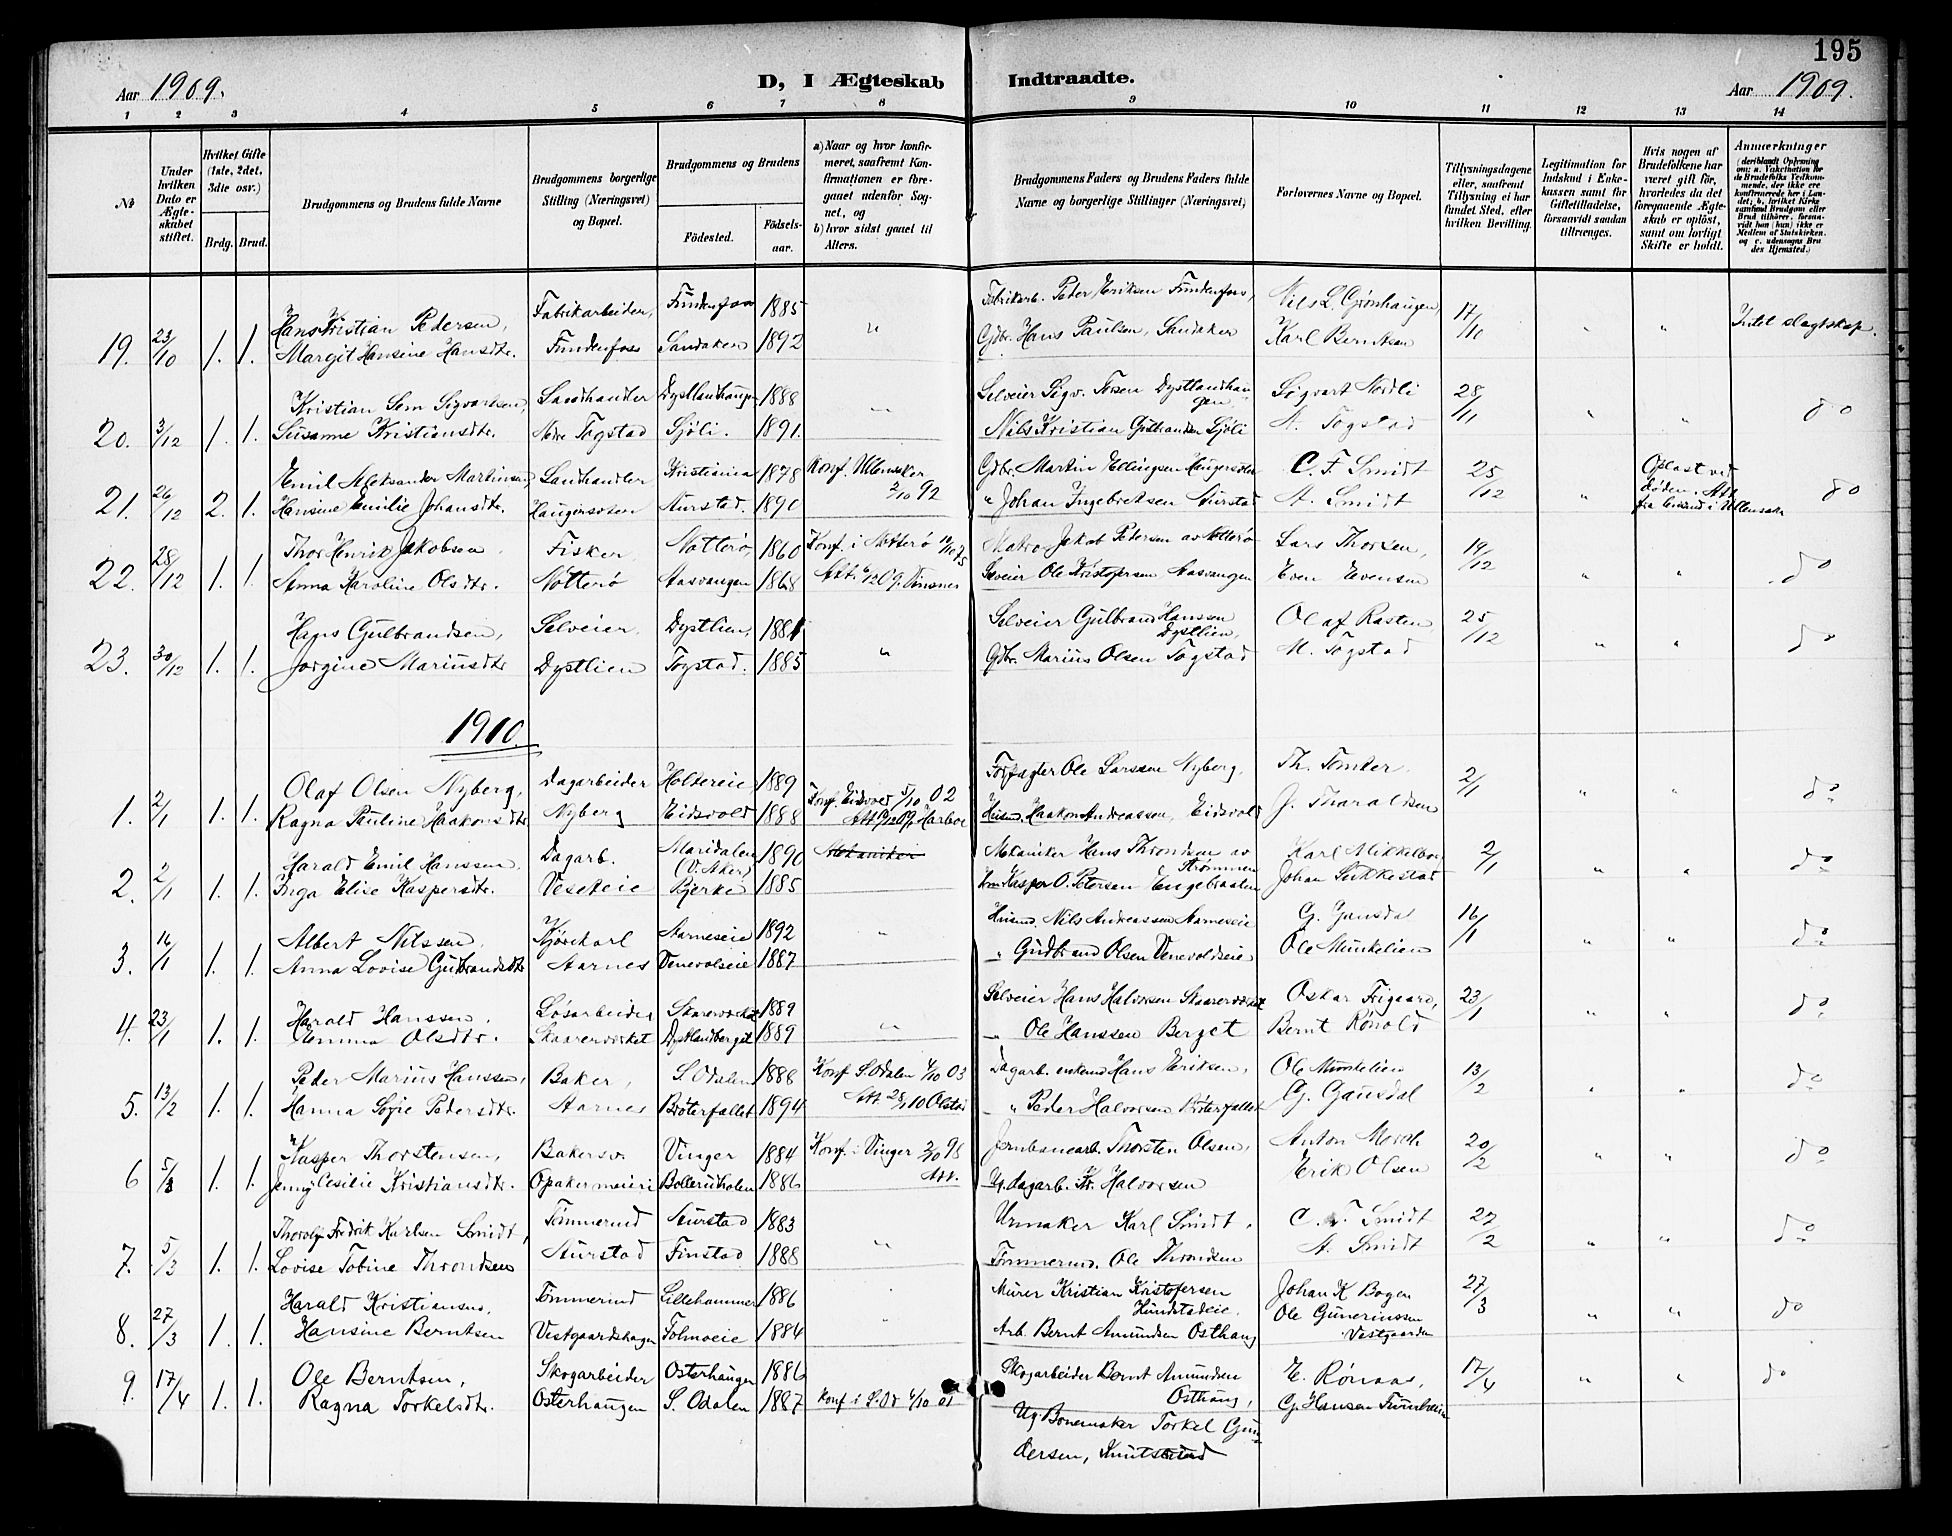 195
Aar 1909.
D, I Ægteskab Indtraadte.
Aar 1909.
1 2 3 4 5 6 7 8 9 10 11 12 13 14
№
Under hvilken Dato er Ægteskabet stiftet.
Hvilket Gifte (1ste, 2det, 3die osv.)
Brdg. Brud.
Brudgommens og Brudens fulde Navne
Brudgommens borgerlige Stilling (Næringsvei) og Bopæl.
Brudgommens og Brudens
Fødested. Fødselsaar.
a) Naar og hvor konfirmeret, saafremt Konfirmationen er foregaaet udenfor Sognet, og
b) hvor sidst gaaet til Alters.
Brudgommens Faders og Brudens Faders fulde Navne og borgerlige Stillinger (Næringsvei)
Forlovernes Navne og Bopæl.
Tillysningsdagene eller, saafremt Tillysning ei har fundet Sted, efter hvilken Bevilling.
Legitimation for Indskud i Enkekassen samt for Giftetilladelse, forsaavidt saadan tiltrænges.
Hvis nogen af Brudefolkene har været gift før, hvorledes da det foregaaende Ægteskab er opløst, samt om lovligt Skifte er holdt.
Anmærkninger
Hans Kristian Pedersen, Fabrikarbeider, Fundenfoss 1885 " Fabrikarb. Peder Eriksen Fundenfoss, Nils L. Grønhaugen 17/10 " " Intet slagtskap.
19. 23/10 1. 1. Margit Hansine Hansdtr. Fundenfoss Sandaker 1892 Gdbr. Hans Paulsen, Sandaker Karl Berntsen
Kristian Sem Sigvartsen, Landhandler Dystlandhaugen 1888 " Selveier Sigv. Dystlandhaugen Sigvart Nordli 28/11 " " do
20. 3/12 1. 1. Susanne Kristiansdtr. Nedre Togstad Sjøli. 1891. Nils Kristian Sjøli A. Togstad
Emil Aleksander Martinsen, Landhandler Kristiania 1878 Konf. Ullensaker 2/10 92 Gdbr. Martin Ellingsen C. F. Smidt 25/12 " Opløst ved døden. Att. fra i Ullensaker do
21. 26/12 2. 1. Hansine Emilie Johansdtr. Haugersosen Aurstad. 1890 " Johan Ingebretsen Aurstad A. Smidt
Thor Henrik Jakobsen Fisker, Nøtterø 1860 Konf. i Nøtterø 10/10 75 Matro Jakob Pedersen av Nøtterø Lars Thorsen, 19/12 " " do
22. 28/12 1. 1. Anna Karoline Olsdtr. Nøtterø Aasvangen 1868 Selveier Ole Kristofersen Aasvangen Even Evensen
Hans Gulbrandsen, Selveier. Dystlien, Selveier Gulbrand Hanssen Dystlien, Olaf Rasten 25/12 " " do
23. 30/12 1. 1. Jorgine Mariusdtr Dystlien Togstad. 1885 " Gdbr. Marius Olsen Togstad M. Togstad
1910.
Olaf Olsen Nyberg, Dagarbeider Holtereie 1889 Konf. Eidsvold 5/10 02 Forpagter Ole Larssen Nyberg, Th. Tomter. 2/1 " " do
1. 2/1 1. 1. Ragna Pauline Haakonsdtr Nyberg Eidsvold 1888 Husm. Haakon Andreassen, Eidsvold J. Tharaldsen
Harald Emil Hanssen. Dagarb. Maridalen (V. Aker) 1890 Mekaniker Mekaniker Hans Throndsen av Strømmen Karl Mikkelbor 2/1 " " do
2. 2/1 1. 1. Inga Elise Kaspersdtr. Veseteie Bjerke 1885 Hm Kasper O. Petersen Engebraaten Johan Sukkestad
Albert Nilssen. Kjørekarl Aarneseie 1892 " Husmd. Nils Andreassen Aarneseie G. Gausdal 16/1 " " do
3. 16/1 1. 1. Anna Lovise Gulbrandsdtr Aarnes Venevolseie 1887 " Gudbrand Olsen Venevoldseie Ole Munkelien
Harald Hanssen. Løsarbeider Skarerværket 1889 Selveier Hans Halvorsen Skarerværket Oskar Frigaard, 23/1 " " do
4. 23/1 1. 1. Emma Olsdtr. Skaarerværket Dystlandberget 1889 " " Ole Hanssen Berget Bernt Rønold
Peder Marius Hanssen, Baker, S. Odalen 1888 Konf. S. Odalen 4/10 03 Dagarb. enkemd Hans Eriksen, Ole Munkelien 13/2 " " do
5. 13/2 1. 1. Hanna Sofie Pedersdtr. Aarnes Brøterfallet 1894 Att. " Peder Halvorsen Brøterfallet G. Gausdal
Kasper Thorstensen, Bakersv. Vinger 1884 Konf. i Vinger 2/10 98 Jernbanearb. Thorsten Olsen, Anton Moroh 20/2 " " do
6 5/3 1. 1. Jenny Cesilie Kristiansdtr. Opaker meieri Bollerudholen 1886 Att. U. dagarb. Kr. Halvorsen Erik Olsen
Thorolf Fredrik Karlsen Smidt, Tømmermd Aurstad 1883 " Urmaker Karl Smidt. C. F. Smidt 27/2 " " do
7. 5/3 1. 1. Lovise Tobine Throndsen Aurstad Finstad 1888 Tømmermd. Ole Throndsen A. Smidt
Harald Kristiansen. Tømmermd Lillehammer 1886 " Murer Kristian Kristofersen Hundstadeie. Johan K Bogen 27/3 " " do
8. 27/3 1. 1. Hansine Berntsen Vestgaardshagen Folmoeie 1884 Arb. Bernt Amundsen Osthaug Ole Gunerinssen Vestgaarden
9. 17/4 1. 1. Ole Berntsen, Skogarbeider Osterhaugen 1886 Skogarbeider Bernt Amundsen Osthaug, E. Rønaas, 17/4 " " do
Ragna Torkelsdtr. Osterhaugen S. Odalen 1887 Konf i S. Od 4/10 01 Ug Bonemaker Torkel Gundersen, Knutstad G. Hansen